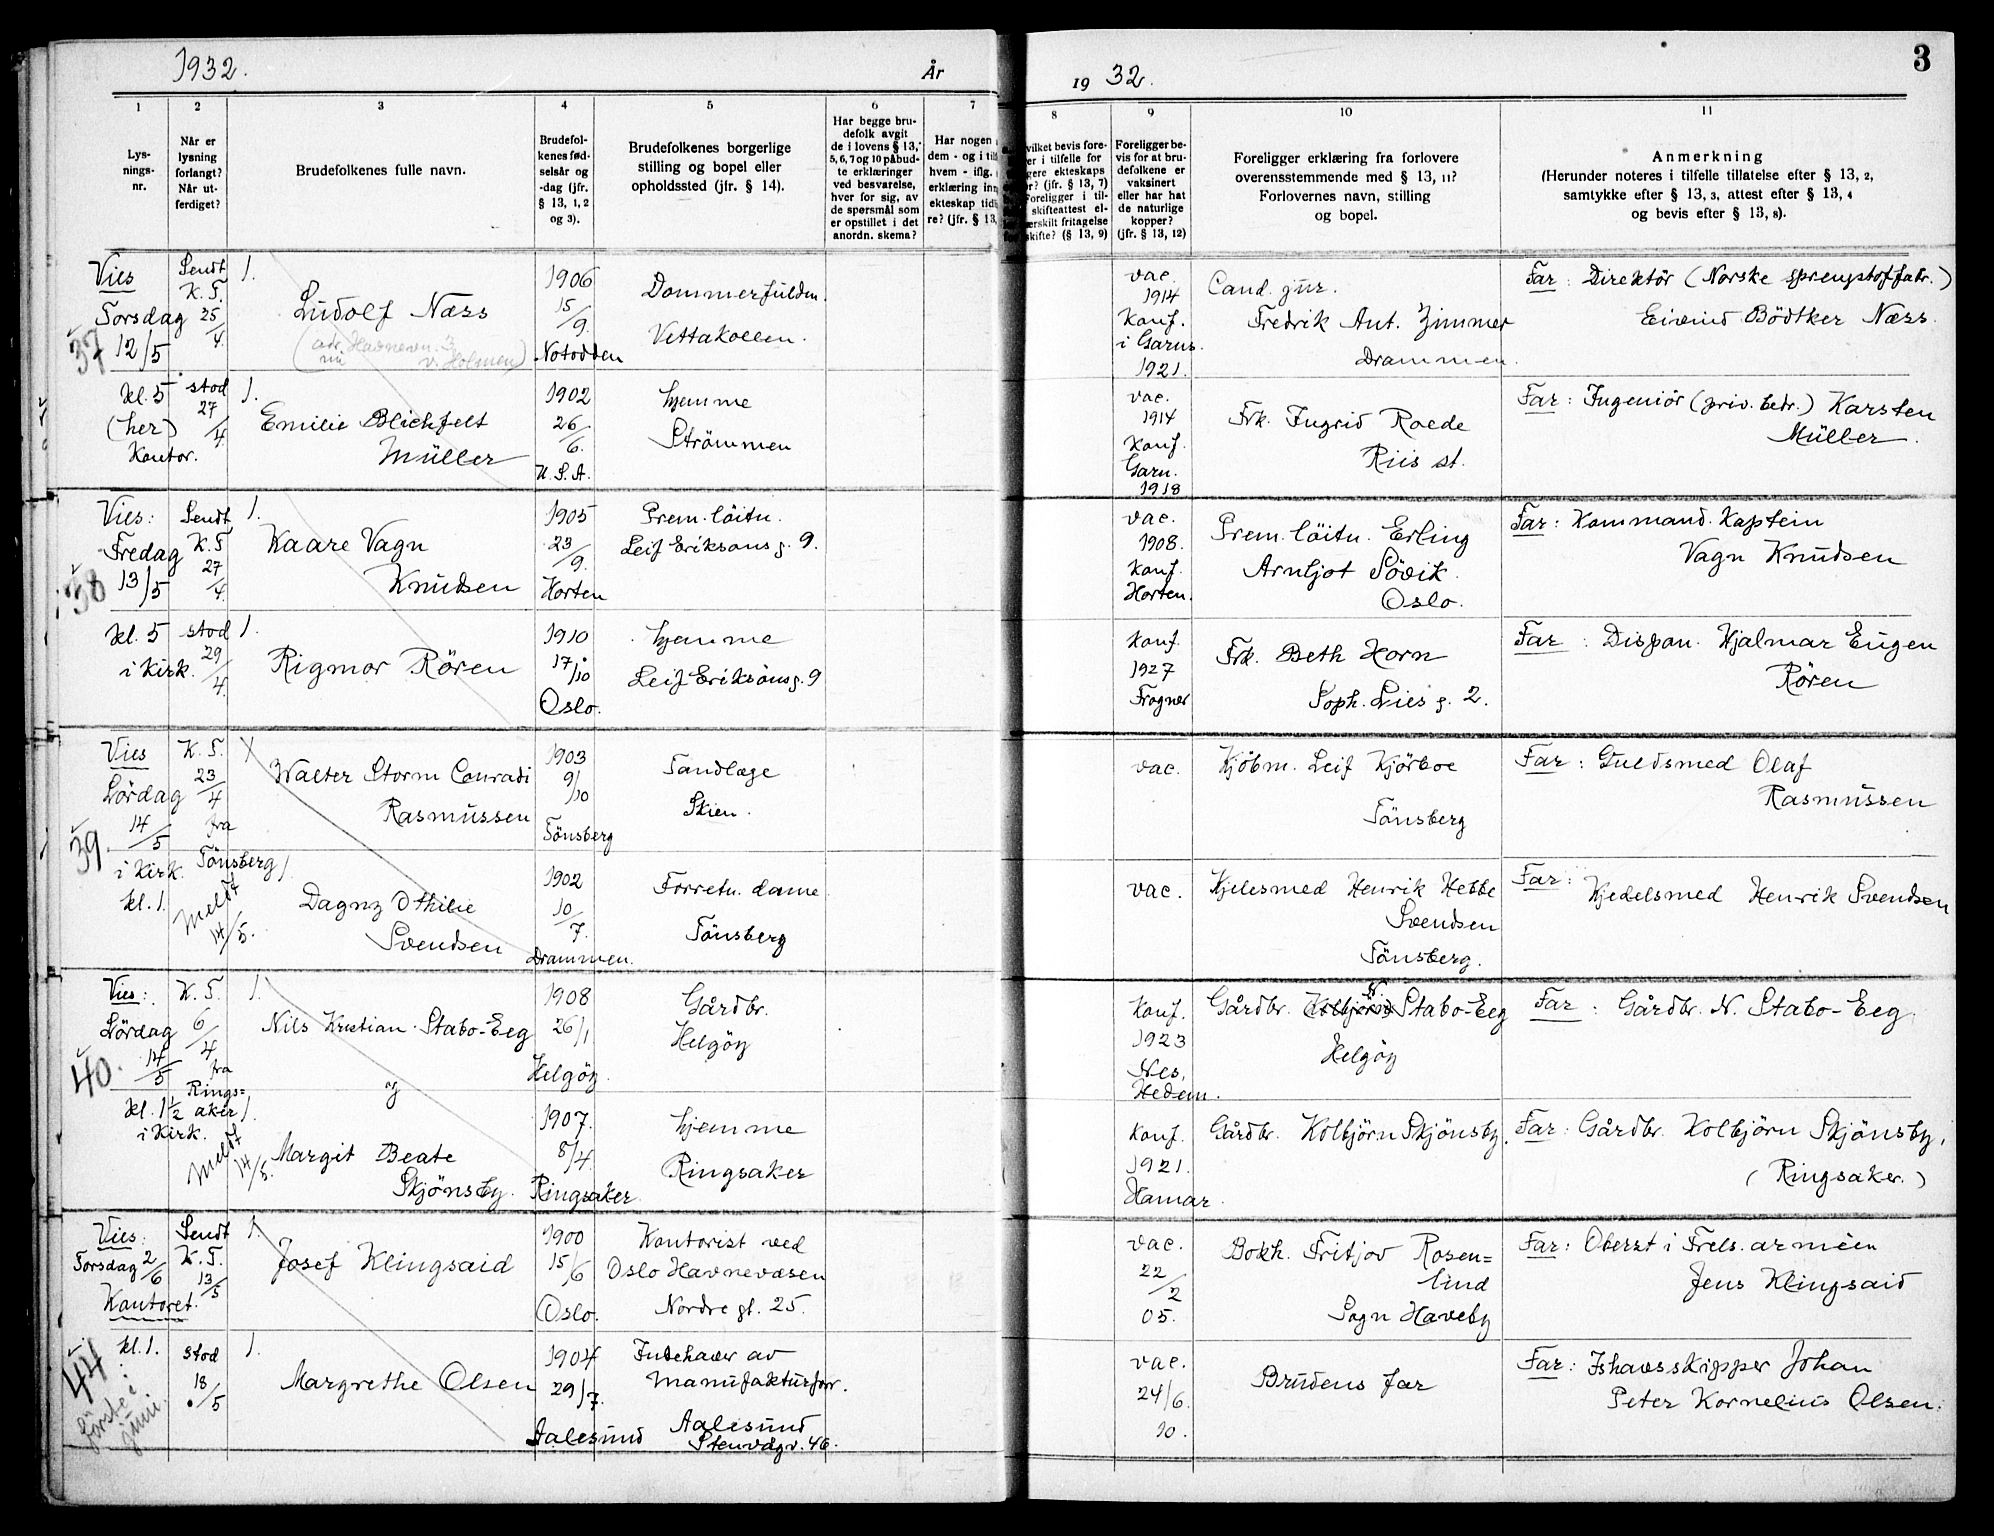 1932. År
1
Lys-
nings-
nr.
2
Når er
lysning
forlangt?
Når ut-
ferdiget?
3
Brudefolkenes fulle navn.
4
Brudefol-
kenes fød-
selsår og
-dag (jfr.
§ 13, 1, 2
og 3).
5
Brudefolkenes borgerlige
stilling og bopel eller
opholdssted (jfr. § 14).
6
Har begge bru-
defolk avgit
de i lovens § 13,
5, 6, 7 og 10 påbud-
te erklæringer
ved besvarelse,
hver for sig, av
de spørsmål som
er opstillet i det
anordn. skema?
7
Har nogen
dem - og i til
hvem - iflg.
erklæring inn
ekteskap tid
re? (jfr. § 13,
Vies
Torsdag
12/5
37
kl. 5
(her)
Kontor.
Sendt
K. T.
25/4
stod
27/4
1.
Ludolf Næss
1906
15/9.
Notodden
Dommerfuldm.
Vettakollen.
1.
Emilie Blichfelt
Müller
1902
26/6.
U. S. A.
hjemme
Strömmen
Vies:
Fredag
13/5
38
kl. 5
i Kirk.
Sendt
K. T
27/4.
stod
29/4.
1.
Kaare Vagn
Knudsen
1905
23/9.
Horten
Prem. löitn.
Leif Eriksons g. 9.
1.
Rigmor Rören
1910
17/10
Oslo.
hjemme
Leif Eriksons g. 9
Vies
Lördag
14/5
39.
i Kirk.
kl. 1.
K. T.
23/4
fra
Tönsberg
Meldt
14/5.
Walter Storm Conradi
Rasmussen
1903
9/10
Tönsberg
Tandlæge
Skien.
1.
Dagny Othilie
Svendsen
1902
10/7.
Drammen.
Forretn. dame
Tönsberg
Vies:
Lördag
14/5
40.
kl. 1 1/2
i Kirk.
K. T.
6/4
fra
Rings=
aker
Meldt
14/5.
1.
Nils Kristian Stabo-Eeg
1908
26/1
Helgöy
Gårdbr.
Helgöy
og
1.
Margit Beate
Skjönsby.
1907.
8/4
Ringsaker
hjemme
Ringsaker
Vies:
Torsdag 2/6
Kontoret.
kl. 1.
44
förste i
juni.
Sendt
K. T.
13/5
stod
18/5
1.
Josef Klingsaid
1900
15/6
Oslo.
Kontorist ved
Oslo Havnevæsen
Nordre gt. 25.
1.
Margrethe Olsen
1904
29/7.
Aalesund
Indehaver av
manufakturforr.
Aalesund
Stenvdgv. 46.
3
19 32.
8
vilket bevis fore-
er i tilfelle for
gere ekteskaps
r? (jfr. § 13, 7)
Foreligger i til-
skifteattest el-
ærskilt fritagelse
skifte? (§ 13, 9)
9
Foreligger be-
vis for at bru-
defolkene er
vaksinert
eller har hat
de naturlige
kopper?
(jfr. § 13, 12)
10
Foreligger erklæring fra forlovere
overensstemmende med § 13, 11?
Forlovernes navn, stilling
og bopel.
11
Anmerkning
(Herunder noteres i tilfelle tillatelse efter § 13, 2,
samtykke efter § 13, 3, attest efter § 13, 4
og bevis efter § 13, 8).
vac.
1914
Konf.
i Garns.
1921.
Cand. jur.
Fredrik Ant. Zimmer
Drammen.
Far: Direktör (Norske sprengstoffabr.)
Eivind Bödtker Næss.
vac.
1914
Konf.
Garn.
1918
Frk. Ingrid Roede
Riis st.
Far: Ingeniör (priv. bedr.) Karsten
Müller.
vac.
1908.
Konf.
Horten.
Prem. löitn. Erling
Arnljot Sövik.
Oslo.
Far: Kommand. Kaptein
Vagn Knudsen
Konf.
1927
Frogner
Frk. Beth Horn
Soph. Lies g. 2.
Far: Dispon. Hjalmar Eugen
Rören
vac.
Kjöbm. Leif Kjörboe
Tönsberg
Far: Guldsmed Olaf
Rasmussen
vac.
Kjelesmed Henrik Hebbe
Svendsen
Tönsberg.
Far: Kjedelsmed Henrik Svendsen
Konf.
1923
Nes,
Hedem.
Gårdbr. N. Stabo-Eeg
Helgöy
Far: Gårdbr. N. Stabo-Eeg.
Konf.
1921.
Hamar.
Gårdbr. Kolbjörn Skjönsby.
Far: Gårdbr. Kolbjörn Skjönsby,
(Ringsaker.)
vac.
22/2
05.
Bokh. Fritjov Rosen=
lind
Sogn Haveby
Far: Oberst i Frels. armèen
Jens Klingsaid
vac.
24/6.
10.
Brudens far
Far: Ishavsskipper Johan
Peter Kornelius Olsen.